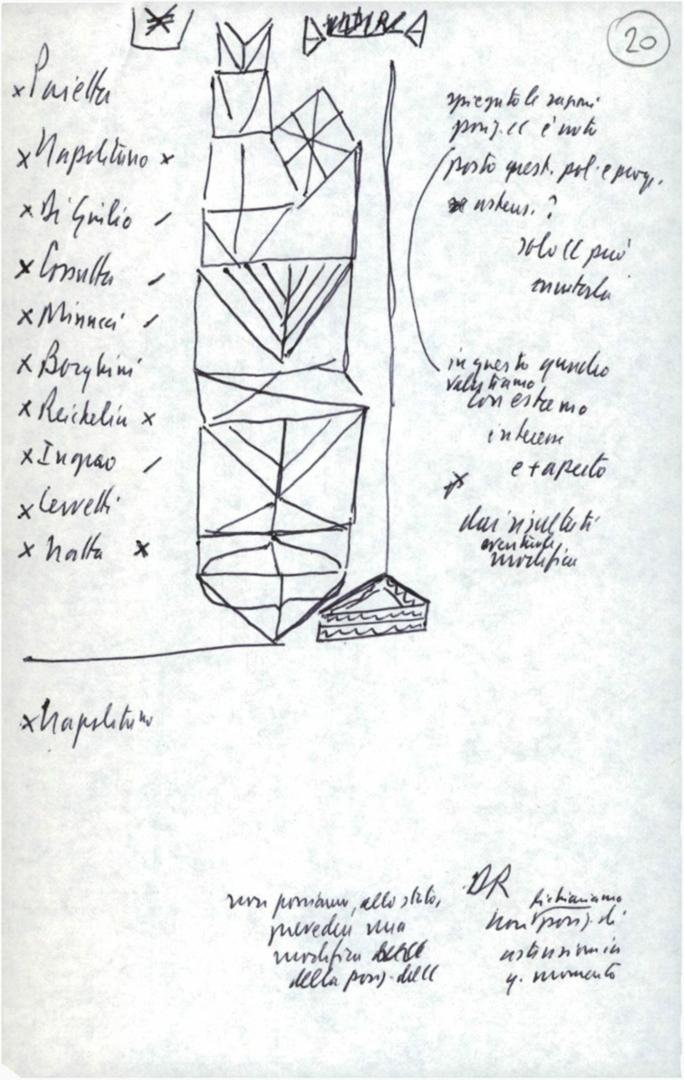 20
x Pajetta
x Napolitano x
x Di Giulio /
x Cossutta /
x Minucci /
x Borghini
x Reichlin x
x Ingrao /
x Cervetti
x Natta x
x Napolitano
spiegato le ragioni
posiz. CC è noto
posto quest. pol. e
astens. ?
solo CC può
mutarla
in questo quadro
valutiamo
con estremo
interesse
e + aperto
dai risultati
eventuale
modifica
non possiamo, allo stato,
prevedere una
modifica
della posiz. del CC
DR
dichiariamo
posiz. di
astensione in
q. momento